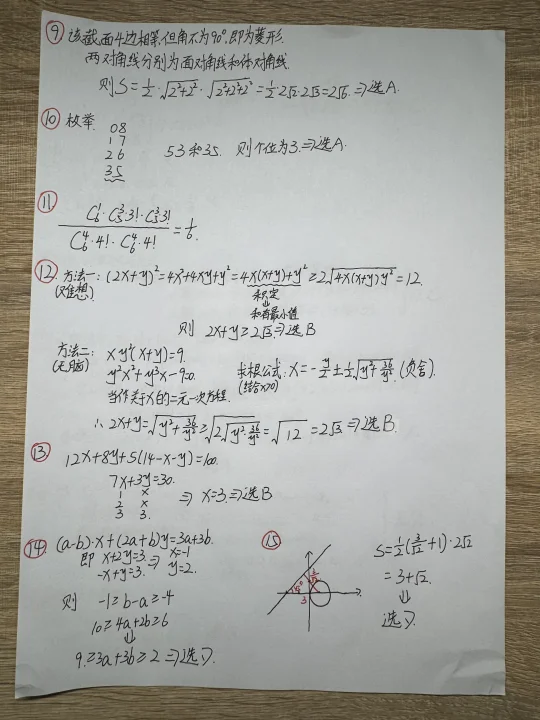 ⑨ 该截面4边相等,但角不为90°,即为菱形.
两对角线分别为面对角线和体对角线.
则S=½·√(2²+2²)·√(2²+2²+2²)=½·2√2·2√3=2√6.⇒选A.
⑩ 枚举.
08
17
26
35
53和35. 则个位为3.⇒选A.
⑪ (C₆¹·C₅³3!·C₅³3!)/(C₆⁴·4!·C₆⁴·4!)=1/6.
⑫ 方法一:(2x+y)²=4x²+4xy+y²=4x(x+y)+y²≥2√(4x(x+y)y²)=12.
(难想)
积定
⇓
和有最小值
则 2x+y≥2√3⇒选B
方法二: xy²(x+y)=9.
(无脑) y²x²+y³x-9=0.
求根公式: x=-y/2±½√(y²+36/y²) (负舍)
(结合x>0)
当作关于x的二元一次方程.
∴2x+y=√(y²+36/y²)≥√(2√(y²·36/y²))=√12=2√3⇒选B.
⑬ 12x+8y+5(14-x-y)=100.
7x+3y=30.
1 x
2 x
3 3
⇒ x=3.⇒选B
⑭ (a-b)·x+(2a+b)y=3a+3b.
即 x+2y=3. ⇒ x=-1
-x+y=3. y=2.
则 -1≥b-a≥-4
10≥4a+2b≥6
⇓
9≥3a+3b≥2⇒选D.
⑮ S=½(3/√2+1)·2√2
=3+√2.
⇓
选D.
45°
3/√2
3